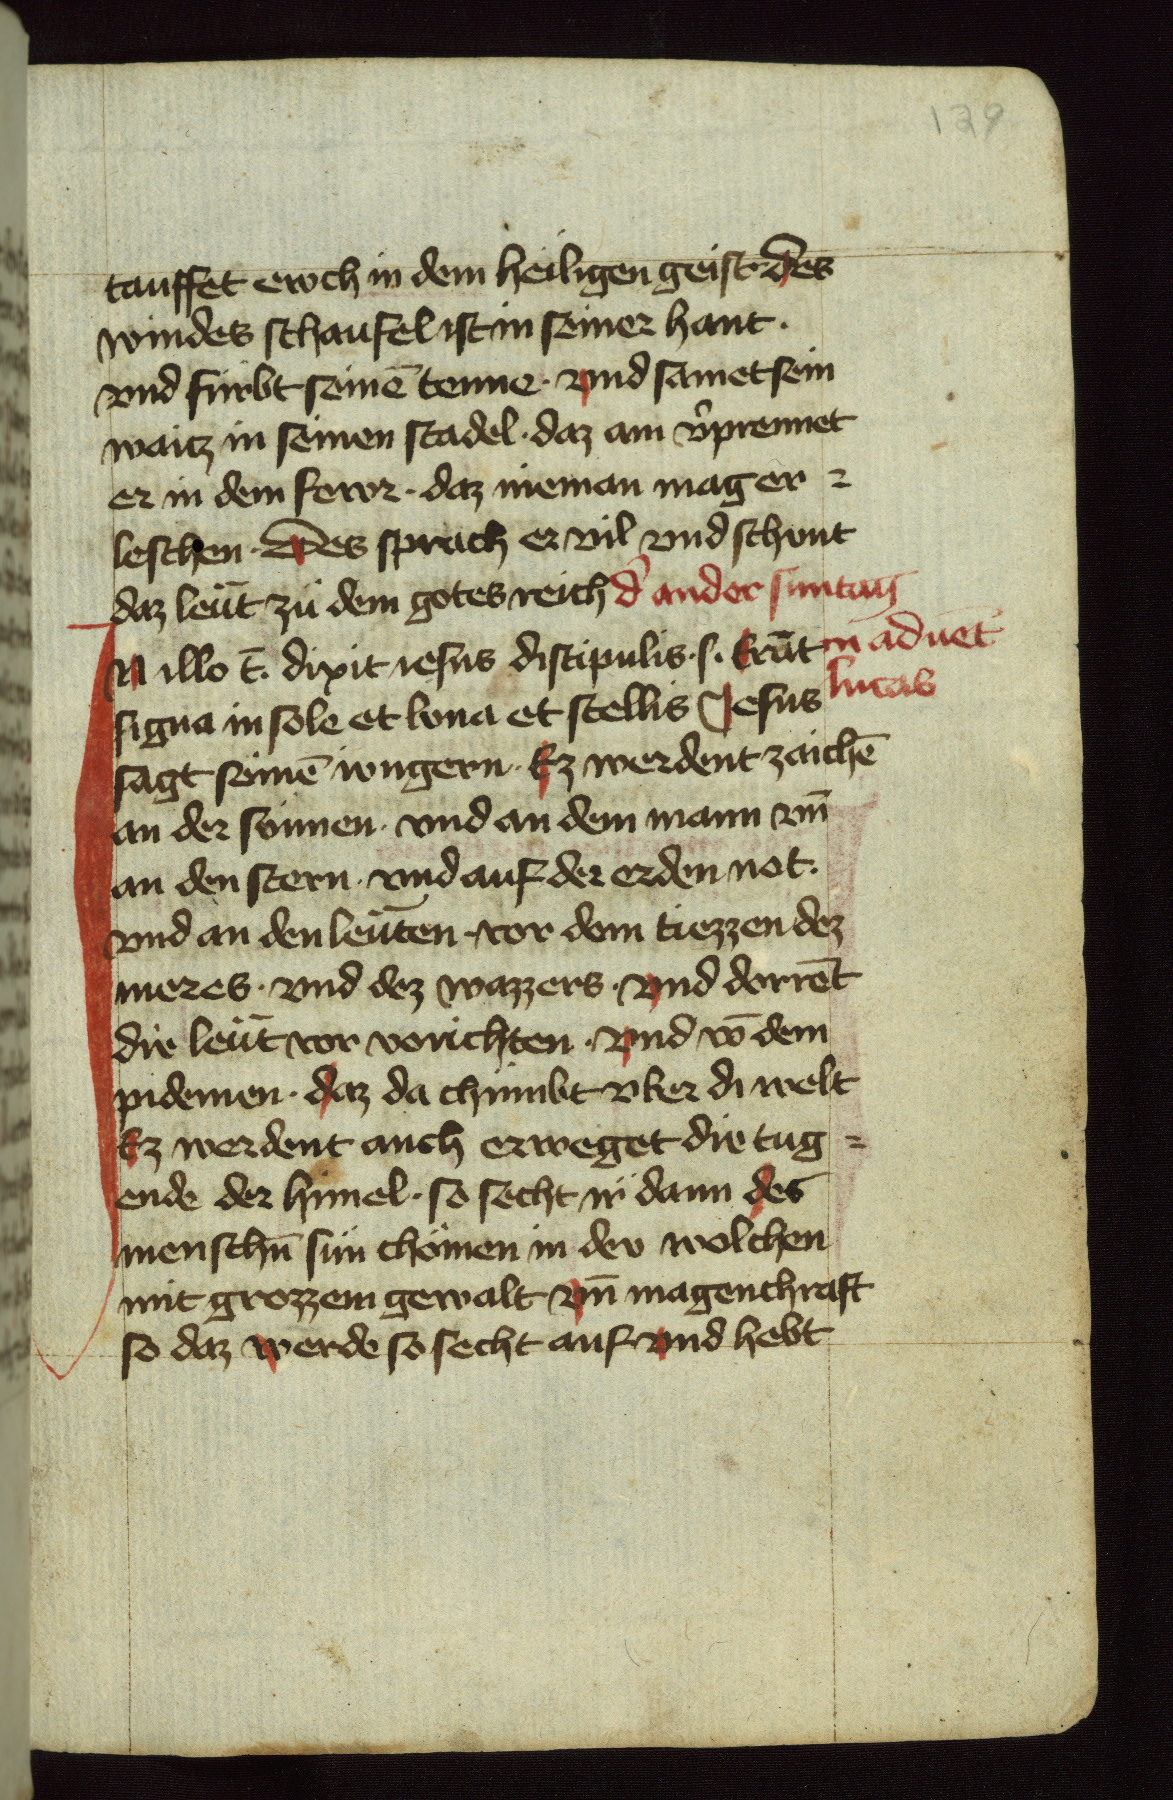 129
tauffet ewch in dem heiligen geist. Des
windes schaufel ist in seiner hant.
vnd fürbt seinē tenne. vnd samet sein
waitz in seinen stadel. daz am v̾prennet
er in dem fewr. daz nieman mag er =
leschen. Des sprach er vil vnd schunt
daz leūt zü dem gotes reich d̾ ander suntag
N illo t̄. dixit iesus discipulis. s. Erūt in aduēt
signa in sole et luna et stellis Jesus lucas
sagt seinē iungern. Ez werdent zaichē
an der sunnen. vnd an dem mann vn̄
an den stern. vnd auf der erden not.
vnd an den leūten. vor dem tiezzen dez
meres. vnd dez wazzers. vnd dorrēt
die leūt vor vorichten. vnd vō dem
pidemen. daz da chümbt vber di welt
Ez werdent auch erweget die tug =
ende der himel. so secht ir dann des
menschn̄ sün chömen in den wolchen
mit grozzem gewalt vn̄ magenchraft
so daz werde so secht auf vnd hebt